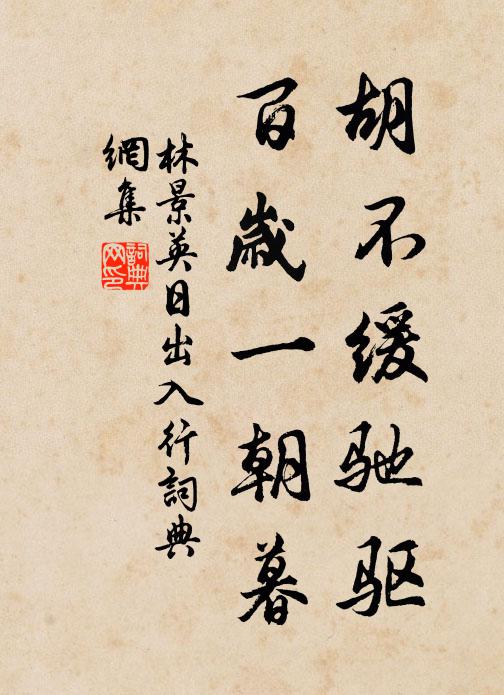 胡不缓驰驱
百歲一朝暮
林景英日出入行詞典
網集
詞典
网印